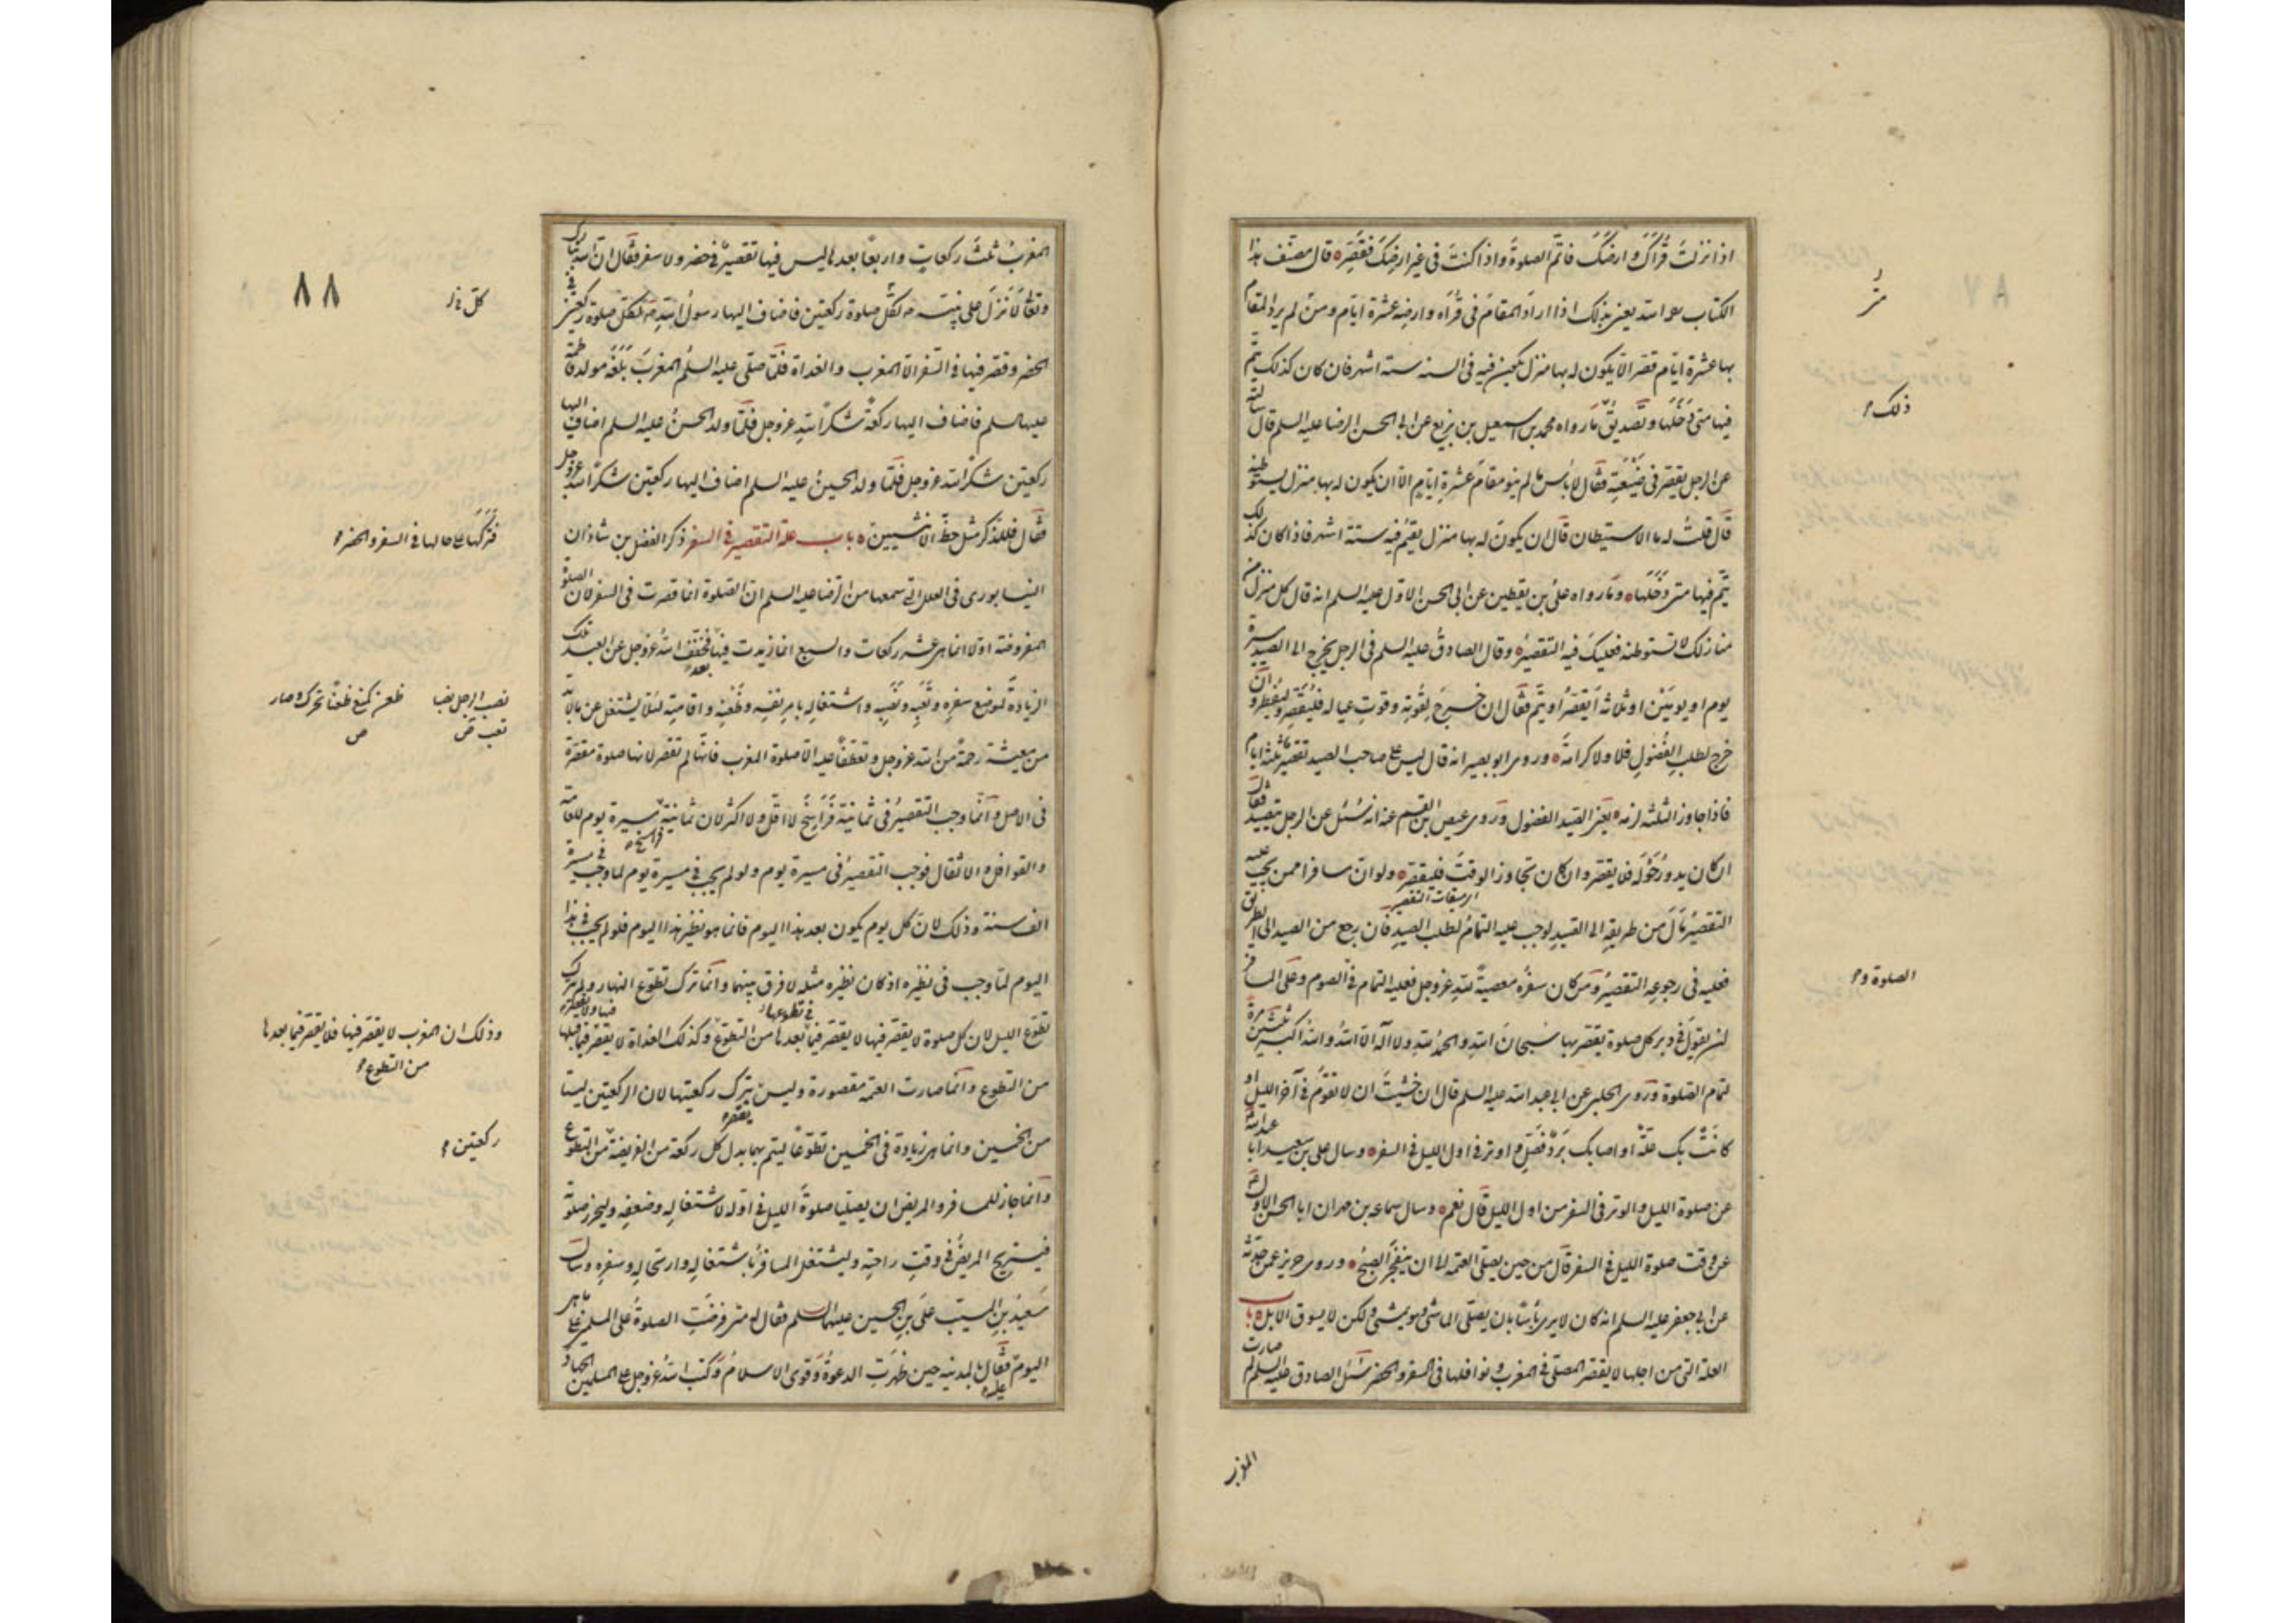 اذا نزلتَ قُراكَ وارضكَ فاتمَّ الصلوةَ واذا كنتَ فى غير ارضكَ فقصِّر ه قال مصنف هذا
الكتاب رحمه الله يعنى بذلك اذا اراد المقامَ فى قُراه وارضه عشرة ايّام ومن لم يرد المقام
بها عشرة ايّام قصّر الّا يكون له بها منزل يكون فيه فى السنه ستة اشهر فان كان كذلك يتمّ
فيها متى دَخَلَها وتصديق ما رواه محمد بن اسمعيل بن بزيع عن ابى الحسن الرضا عليه السلم قال سالته
عن الرجل يقصّر فى ضَيْعَتِه فقال لا باس ما لم ينو مقامَ عشرةِ ايّامٍ الّا ان يكون له بها منزل يستوطنه
قال قلتُ له ما الاستيطان قال ان يكونَ له بها منزل يقيمُ فيه ستة اشهر فاذا كان كذلك
يتّم فيها متى دَخَلَها ه وما رواه على بن يقطين عن ابى الحسن الاوّل عليه السلم انه قال كل منزل من
منازلك لا تستوطنه فعليكَ فيه التقصيرُ ه وقال الصادقُ عليه السلم فى الرجل يخرج الى الصيد مسيرة
يوم او يومَيْن او ثلاثة ايقصّر او يتّم فقال ان خرج لقُوتِه وقوتِ عياله فليُقَصِّر وليُفطِر وان
خرج لطلبِ الفُضُولِ فلا ولا كرامةَ ه وروى ابو بصير انه قال ليس على صاحب الصيد تقصير ثلثة ايام
فاذا جاوز الثلثه لزمه ه يعنى الصيد الفضول وروى عيص بن القسم عنه انه سُئل عن الرجل يتصيّد فقال
ان كان يدورُ حَوْلَه فلا يقصّر وان كان تجاوز الوقتَ فليقصّر ه ولو ان مسافرا ممن يجب عليه
اى ميقات التقصير
التقصيرُ مَالَ من طريقِه الى الصيدِ لوجب عليه التمامُ لطلب الصيدِ فان رجع من الصيد الى الطريق
فعليه فى رجوعه التقصيرُ ومَن كان سفرُه معصيةً للهِ عزوجل فعليه التمام فى الصوم وعلى المسافر
ان يقولَ فى دبر كل صلوة يقصّر بها سُبحانَ اللهِ والحمدُ للهِ ولا اله الّا اللهُ والله اكبر ثلثين مرة
لتمام الصلوة وروى الحلبى عن ابى عبد الله عليه السلم قال ان خشيتَ ان لا تقومَ فى آخر الليل او
كانَتْ بك علّة او اصابك بَرْد فصَلِّ واوتر فى اول الليل فى السفر ه وسال على بن سعيد ابا عبد الله
عن صلوة الليل والوتر فى السفر من اول الليل قال نعم ه وسال سماعه بن مهران ابا الحسن الاول
عن وقت صلوة الليل فى السفر قال من حين يصلّى العتمه الى ان ينفجرَ الصبح ه وروى حريز عمن حدّثه
عن ابى جعفر عليه السلم انه كان لا يرى باسًا بان يصلّى الماشى وهو يمشى ولكن لا يسوق الابل ه باب
العلة التى من اجلها لا يقصّر المصلّى فى المغرب ونوافلها فى السفر والحضر سُئل الصادق عليه السلم لم صارت
المغرب
ذلك
الصلوة و
المغربُ ثلثَ ركعاتٍ واربعًا بعدها ليس فيها تقصيرٌ فى حضر ولا سفر فقال انّ الله تبارك
وتعالى نزل على نبيّه ص لكلّ صلوة ركعتين فاضاف اليها رسولُ اللهِ ص لكل صلوة ركعتين فى
الحضر وقصّر فيها فى السّفر الّا المغرب والغداة فلمّا صلّى عليه السلم المغربَ بلغه مولد فاطمة
عليها السلم فاضاف اليها ركعةً شكرًا للهِ عزوجل فلمّا ولد الحسنُ عليه السلم اضاف اليها
ركعتين شكرًا لله عزوجل فلمّا ولد الحسينُ عليه السلم اضاف اليها ركعتين شكرًا لله عزوجل
فقال للذّكر مثل حظّ الانثيين ه باب علة التقصير فى السفر ذكر الفضل بن شاذان
النيسابورى فى العلل التى سمعها من الرّضا عليه السلم ان الصّلوة انّما قصرت فى السفر لانّ الصلوة
المفروضة اولا انما هى عشر ركعات والسبع انّما زيدت فيها بعد فخَفّف اللهُ عزوجل عن العبد تلك
الزيادةَ لموضع سفرِه وتَعَبِه ونَصَبِه واشتغالِه بامرِ نفسِه وظَعْنِه واقامتِه لئلا يشتغل عن ما لا بدّ
من معيشته رحمةً من الله عزوجل وتعطّفًا عليه الّا صلوة المغرب فانّها لم تقصّر لانها صلوة مقصّرة
فى الاصل وانّما وجب التّقصيرُ فى ثمانيةِ فَرَاسِخَ لا اقلّ ولا اكثر لان ثمانية فراسخ مسيرة يوم للعامّة
والقوافل والاثقال فوجب التقصيرُ فى مسيرة يوم ولو لم يجب فى مسيرة يوم لما وجب فى مسيرة
الف سنة وذلك لانّ كل يوم يكون بعد هذا اليوم فانما هو نظير هذا اليوم فلو لم يجب فى هذا
اليوم لما وجب فى نظيره اذ كان نظيره مثله لا فرق بينهما وانّما ترك تطوّع النهار ولم يترك
تطوّع الليل لان كل صلوة لا يقصّر فيها لا يقصّر فيما بعدها من التطوّع وكذلك الغداة لا يقصّر فيما قبلها
فى تطوعها
من التطوع وانّما صارت العتمة مقصورة وليس يترك ركعتيها لان الركعتين ليستا
من الخمسين وانّما هى زيادة فى الخمسين تطوّعًا ليتم بهما بدل كل ركعة من الفريضة من التطوّع
وانما جاز للمسافر والمريض ان يصلّيا صلوةَ الليل فى اوّله لاشتغالِه وضعفِه وليحرز صلوته
فيستريح المريضُ فى وقتِ راحتِه وليشتغل المسافرُ باشتغالِه وارتحالِه وسفرِه وسال
سَعيدُ بن المسيّب علىَّ بنَ الحسين عليهما السلم فقال له متى فرضت الصلوةُ على المسلمين على ما هى
اليومَ عليه فقال بالمدينه حين ظهرَت الدعوةُ وقوى الاسلامُ وكتب اللهُ عزوجل على المسلمين الجهاد
٨٨
فتركها على حالها فى السفر والحضر
نصب الرجل نصبا تعب ص
ظعن كمنع ظعنًا تحرك وصار ص
وذلك ان المغرب لا يقصّر فيها فلا يقصّر فيما بعدها
من التطوع
ركعتين